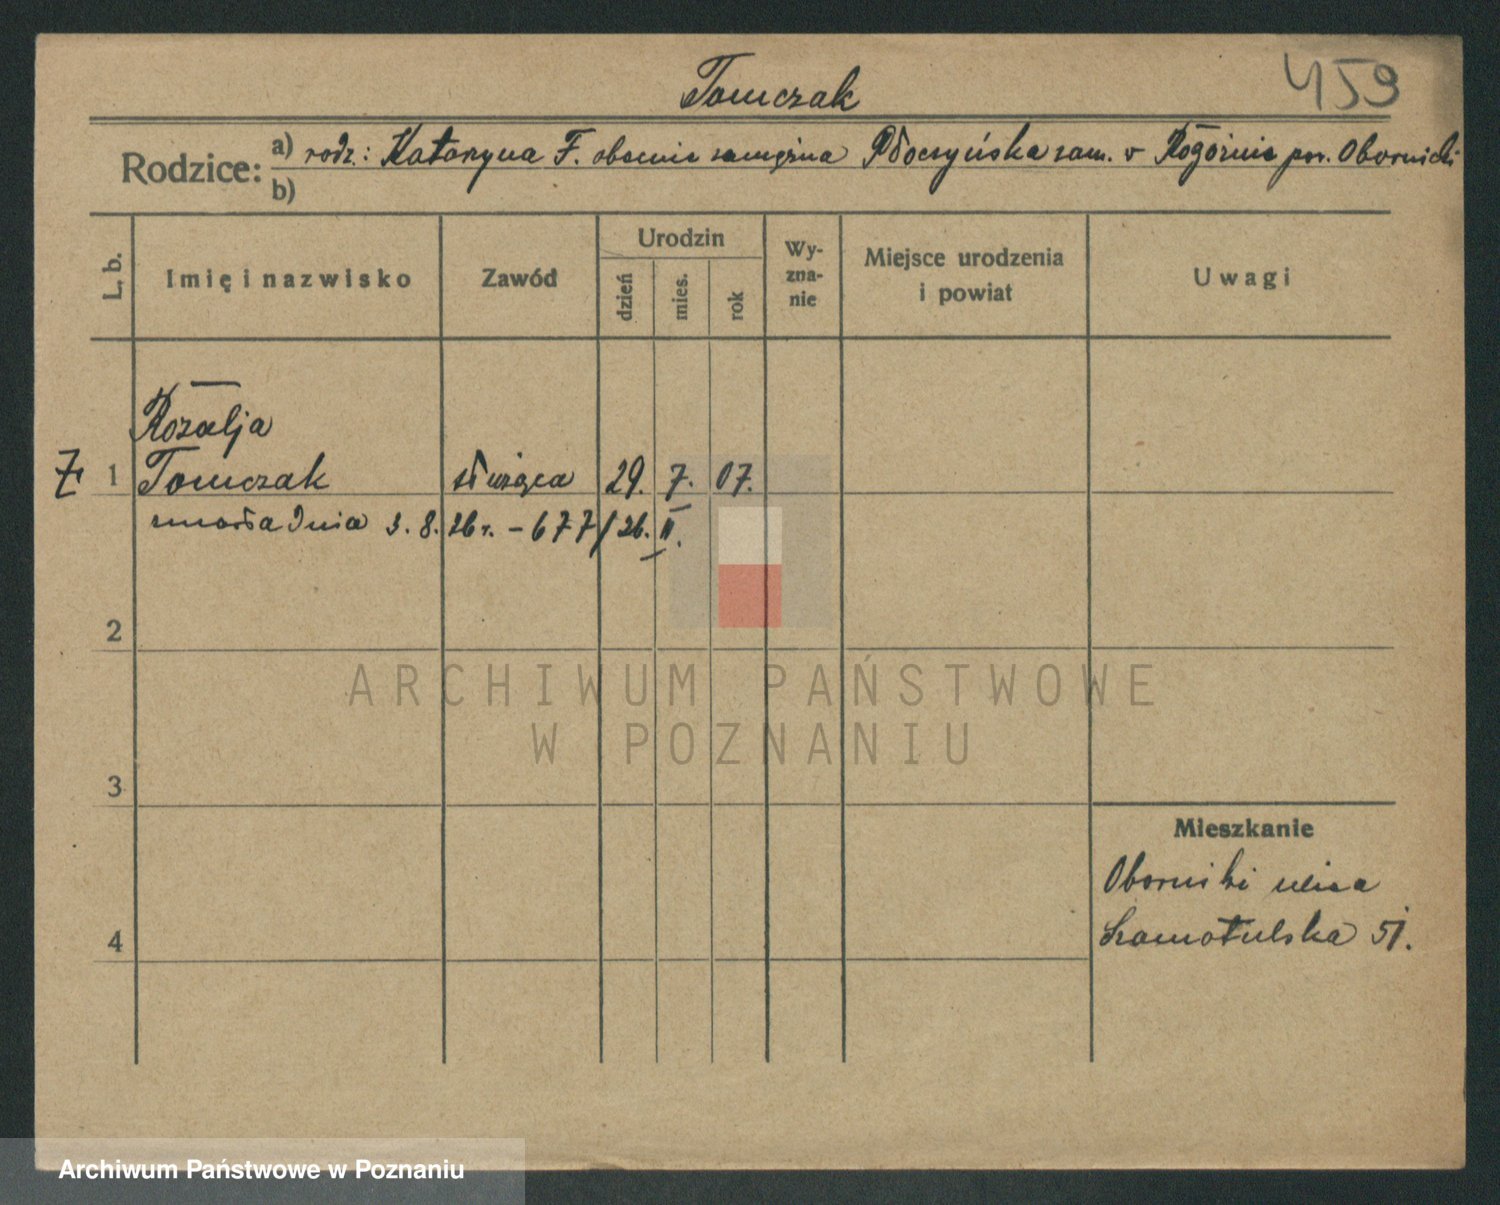 Tomczak
459
Rodzice: a) rodz.: Katarzyna F. obecnie zamężna Płoczyńska zam. v Rogoźnie pow. Obornicki
b)
L. b. Imię i nazwisko Zawód Urodzin dzień mies. rok Wy-zna-nie Miejsce urodzenia i powiat Uwagi
Rozalja
1 Tomczak służąca 29. 7. 07.
zmarła dnia 3. 8. 26 r. – 677/26. II.
2
ARCHIWUM PAŃSTWOWE
W POZNANIU
3
Mieszkanie
Oborniki ulica
4
Szamotulska 51.
Archiwum Państwowe w Poznaniu